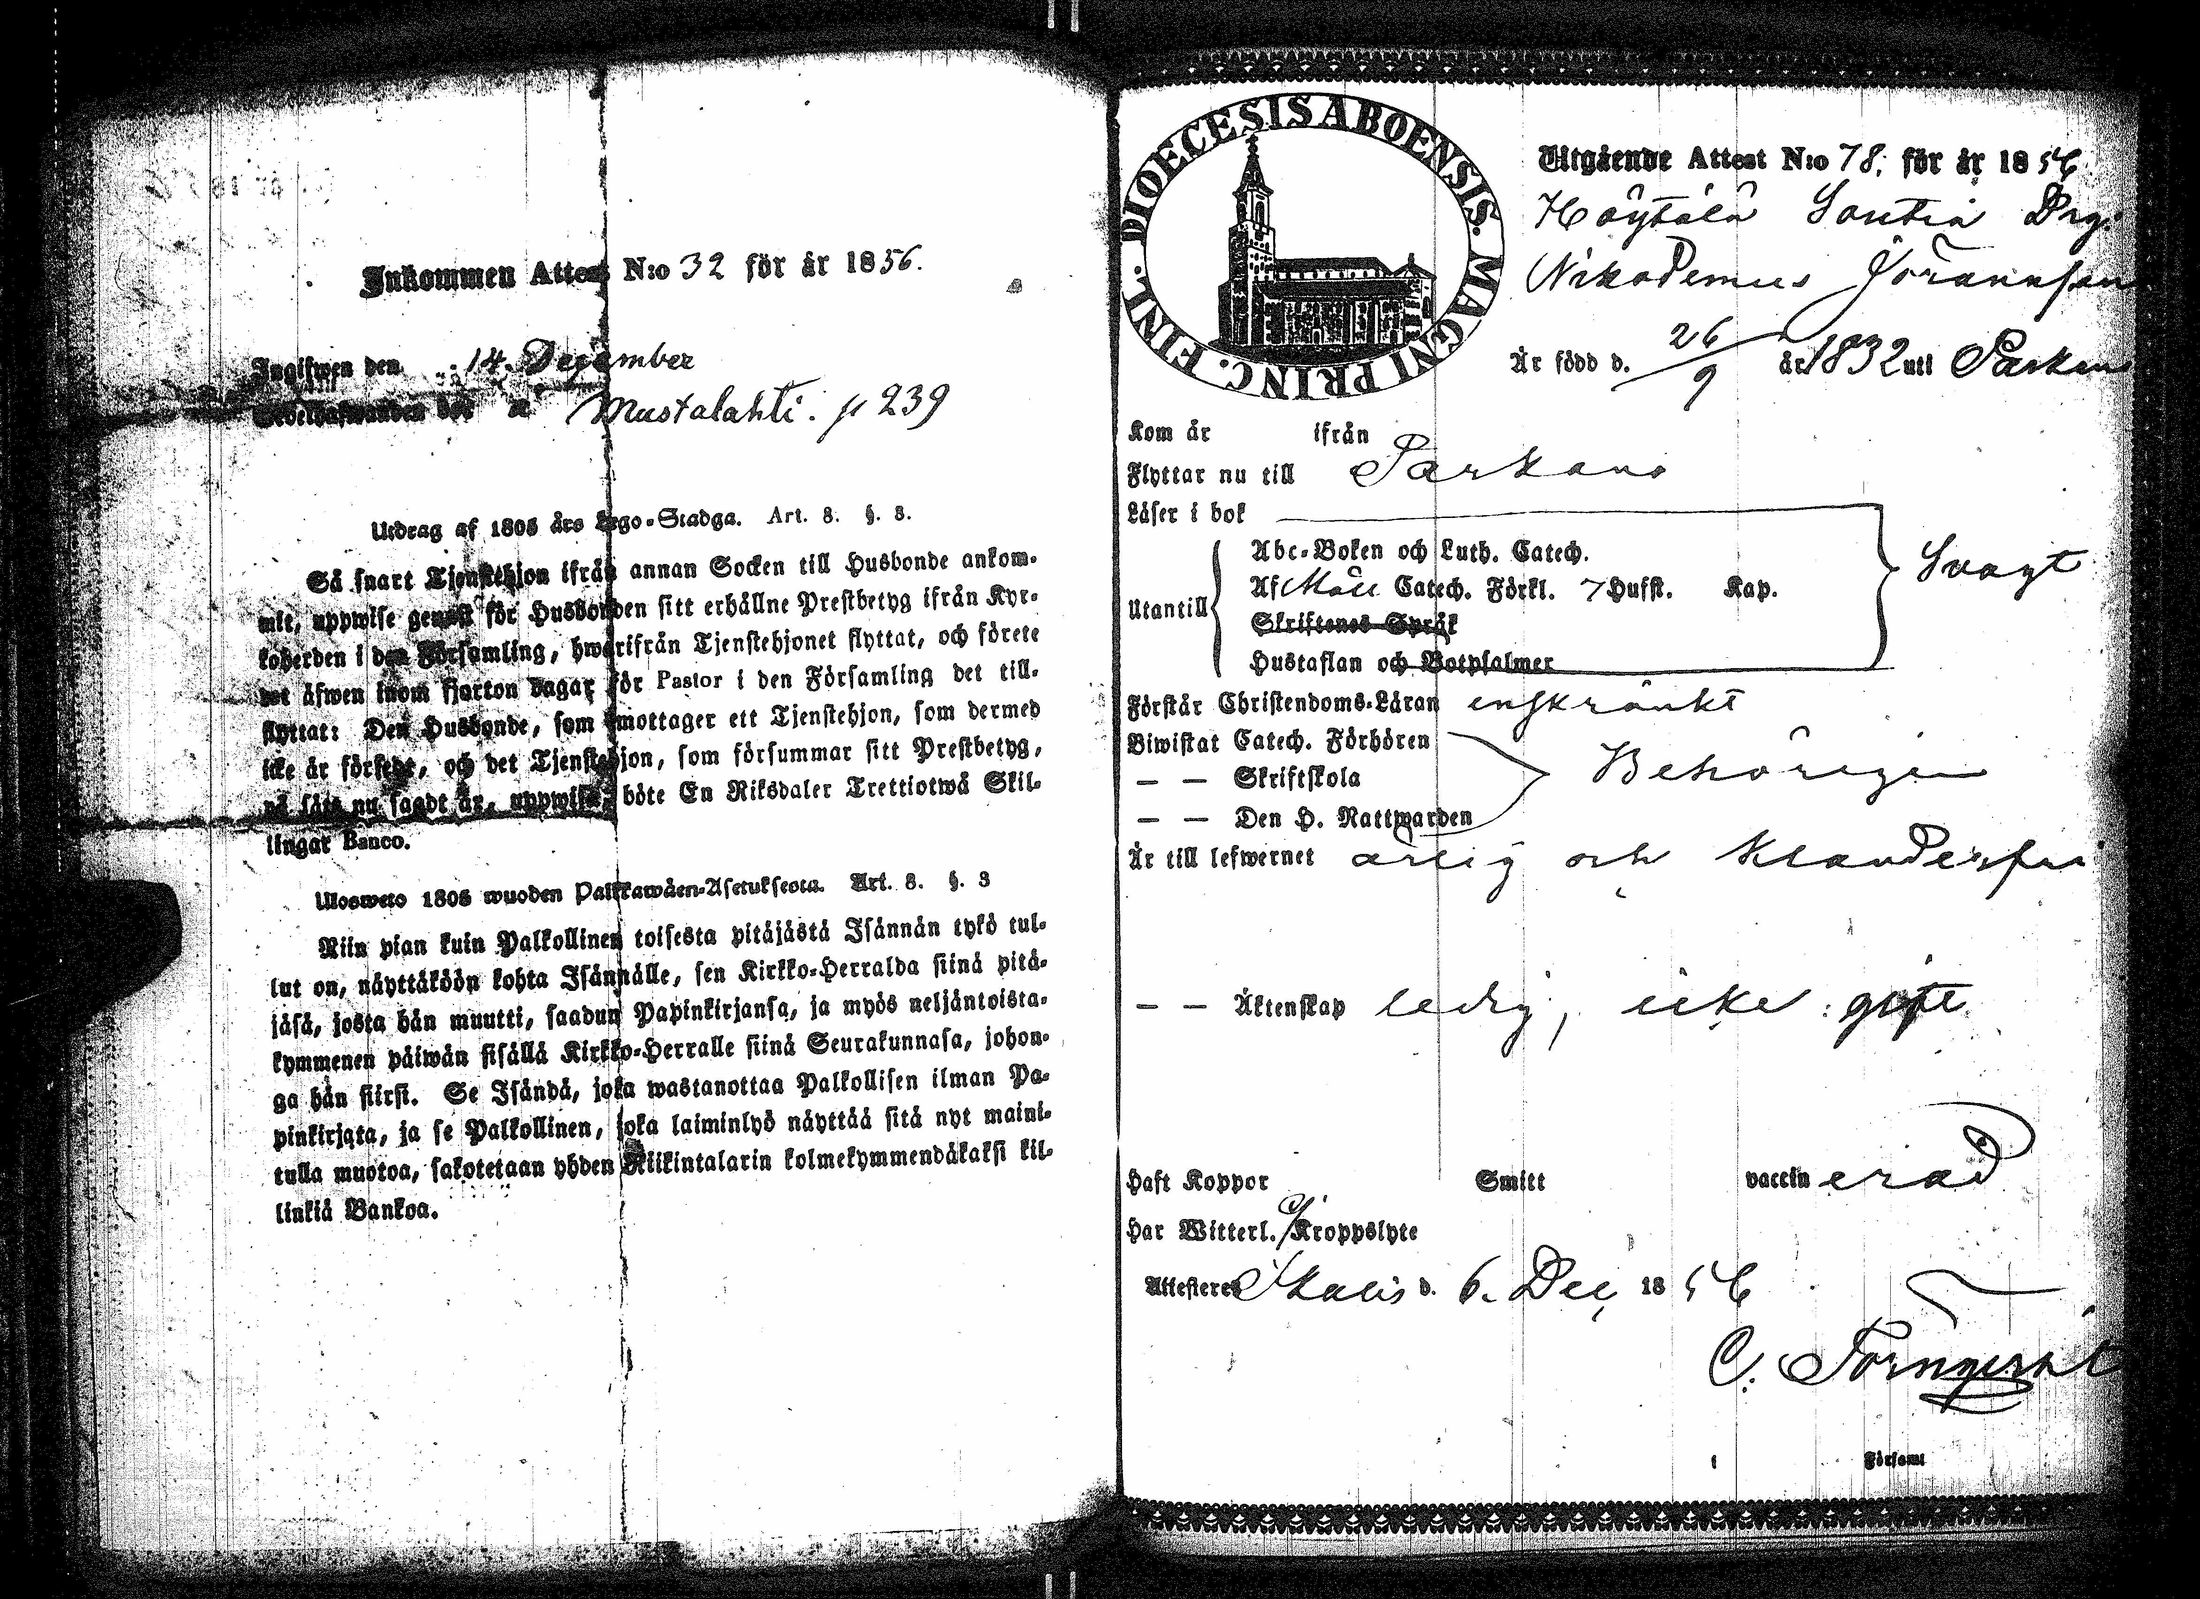 Inkommen Attest N:o 32 för år 1856.
Ingifwen den 14. December
Mustalahti. p 239
Utdrag af 1805 års Lego-Stadga. Art. 8. §. 3.
Så snart Tjenstehjon ifrån annan Socken till Husbonde ankom-
mit, uppwise genast för Husbonden sitt erhållne Prestbetyg ifrån Kyr-
koherden i den Församling, hwarifrån Tjenstehjonet flyttat, och förete
det äfwen inom fjorton dagar för Pastor i den Församling det till-
flyttat: Den Husbonde, som emottager ett Tjenstehjon, som dermed
icke är försedt, och det Tjenstehjon, som försummar sitt Prestbetyg,
på sätt nu sagdt är, uppwisa, böte En Riksdaler Trettiotwå Skil-
lingar Banco.
Ulosweto 1805 wuoden Palkkawäen-Asetuksesta. Art. 8. §. 3
Niin pian kuin Palkollinen toisesta pitäjästä Isännän tykö tul-
lut on, näyttäköön kohta Isännälle, sen Kirkko-Herralda siinä pitä-
jäsä, josta hän muutti, saadun Papinkirjansa, ja myös neljäntoista-
kymmenen päiwän sisällä Kirkko-Herralle siinä Seurakunnasa, johon-
ga hän siirsi. Se Isändä, joka wastanottaa Palkollisen ilman Pa-
pinkirjata, ja se Palkollinen, joka laiminlyö näyttää sitä nyt maini-
tulla muotoa, sakotetaan yhden Riikintalarin kolmekymmendäkaksi kil-
linkiä Bankoa.
DIOECESIS ABOENSIS. MAGNI PRINC. FINL.
Utgående Attest N:o 78; för år 1856
Drg:
Nikodemus Johansson
Är född d. 26/9 år 1832 uti Parkano
Kom år ifrån
Flyttar nu till Parkano
Läser i bok
Abc-Boken och Luth. Catech.
Af Catech. Förkl. 7 Husst. Kap.
Svagt
Utantill
Skriftenes Språk
Hustaflan och Botpsalmer
Förstår Christendoms-Läran inskränkt
Biwistat Catech. Förhören
— — Skriftskola
Behörigen
— — Den H. Nattwarden
Är till lefwernet ärlig och klanderfri
— — Äktenskap ledig, icke gift
Haft Koppor Smitt vaccinerad
Har Witterl. ej Kroppslyte
Attesteres Ikalis d. 6. Dec, 1856
C. Törnqvist
Församl